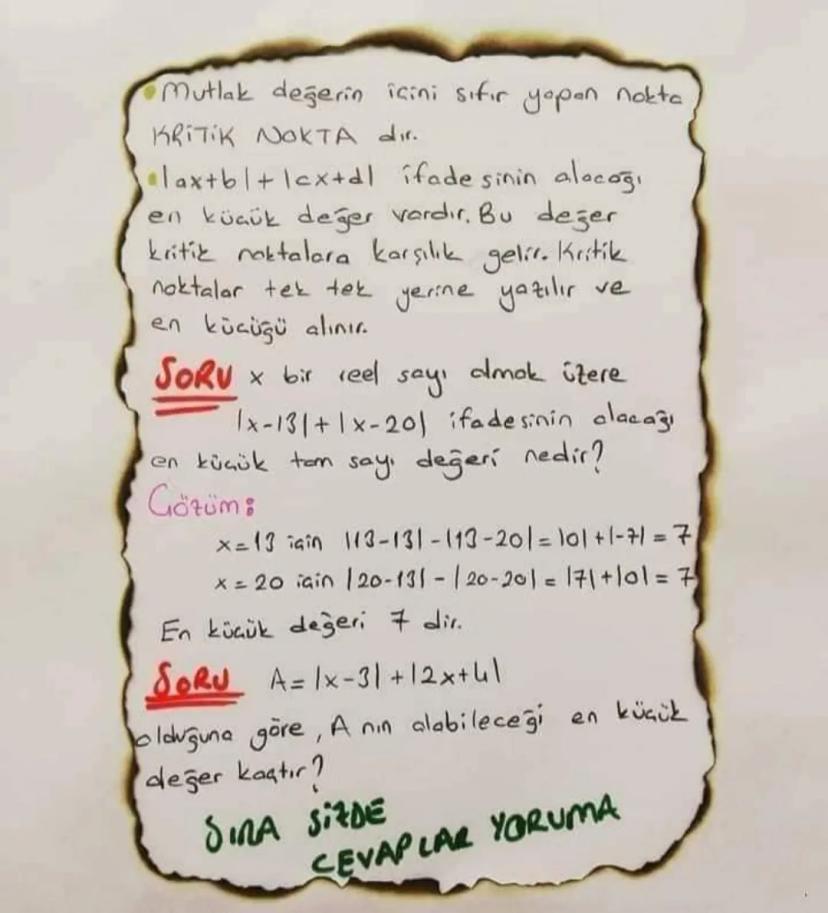 • Mutlak değerin içini sıfır yapan nokta
KRİTİK NOKTA dır.
• |ax+b| + |cx+d| ifadesinin alacağı
en küçük değer vardır. Bu değer
kritik noktalara karşılık gelir. Kritik
noktalar tek tek yerine yazılır ve
en küçüğü alınır.
SORU x bir reel sayı olmak üzere
|x-13| + |x-20| ifadesinin alacağı
en küçük tam sayı değeri nedir?
Çözüm:
x=13 için |13-13| - |13-20| = |0| + |-7| = 7
x=20 için |20-13| - |20-20| = |7| + |0| = 7
En küçük değeri 7 dir.
SORU A= |x-3| + |2x+4|
olduğuna göre, A nın alabileceği en küçük
değer kaçtır?
SIRA SİZDE
CEVAPLAR YORUMA